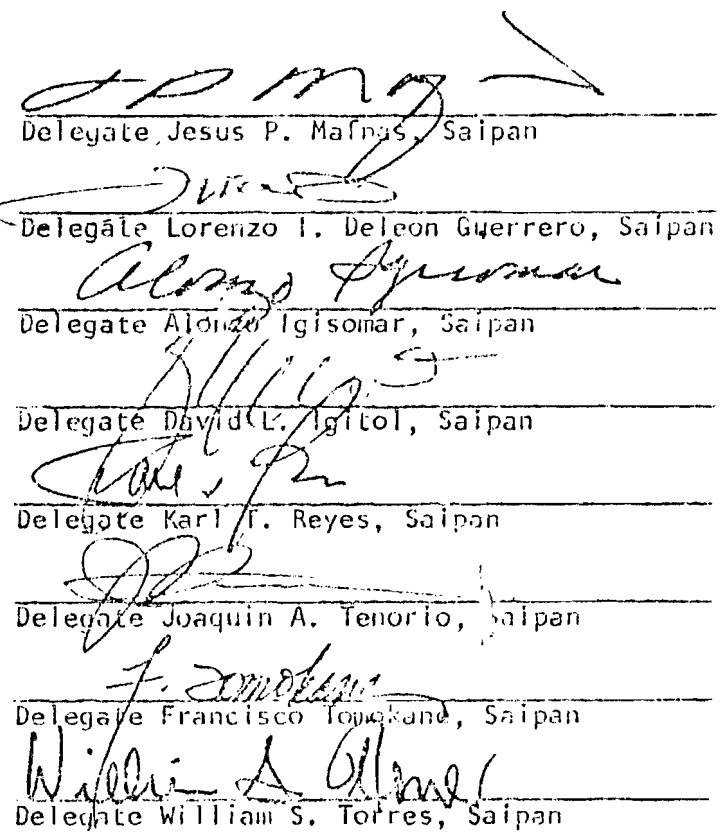 Delegate Jesus P. Mafnas, Saipan
Delegate Lorenzo I. Deleon Guerrero, Saipan
Alonzo Igisomar
Delegate Alonzo Igisomar, Saipan
Delegate David L. Igitol, Saipan
Delegate Karl T. Reyes, Saipan
Delegate Joaquin A. Tenorio, Saipan
F. Tomokane
Delegate Francisco Tomokane, Saipan
William S. Torres
Delegate William S. Torres, Saipan